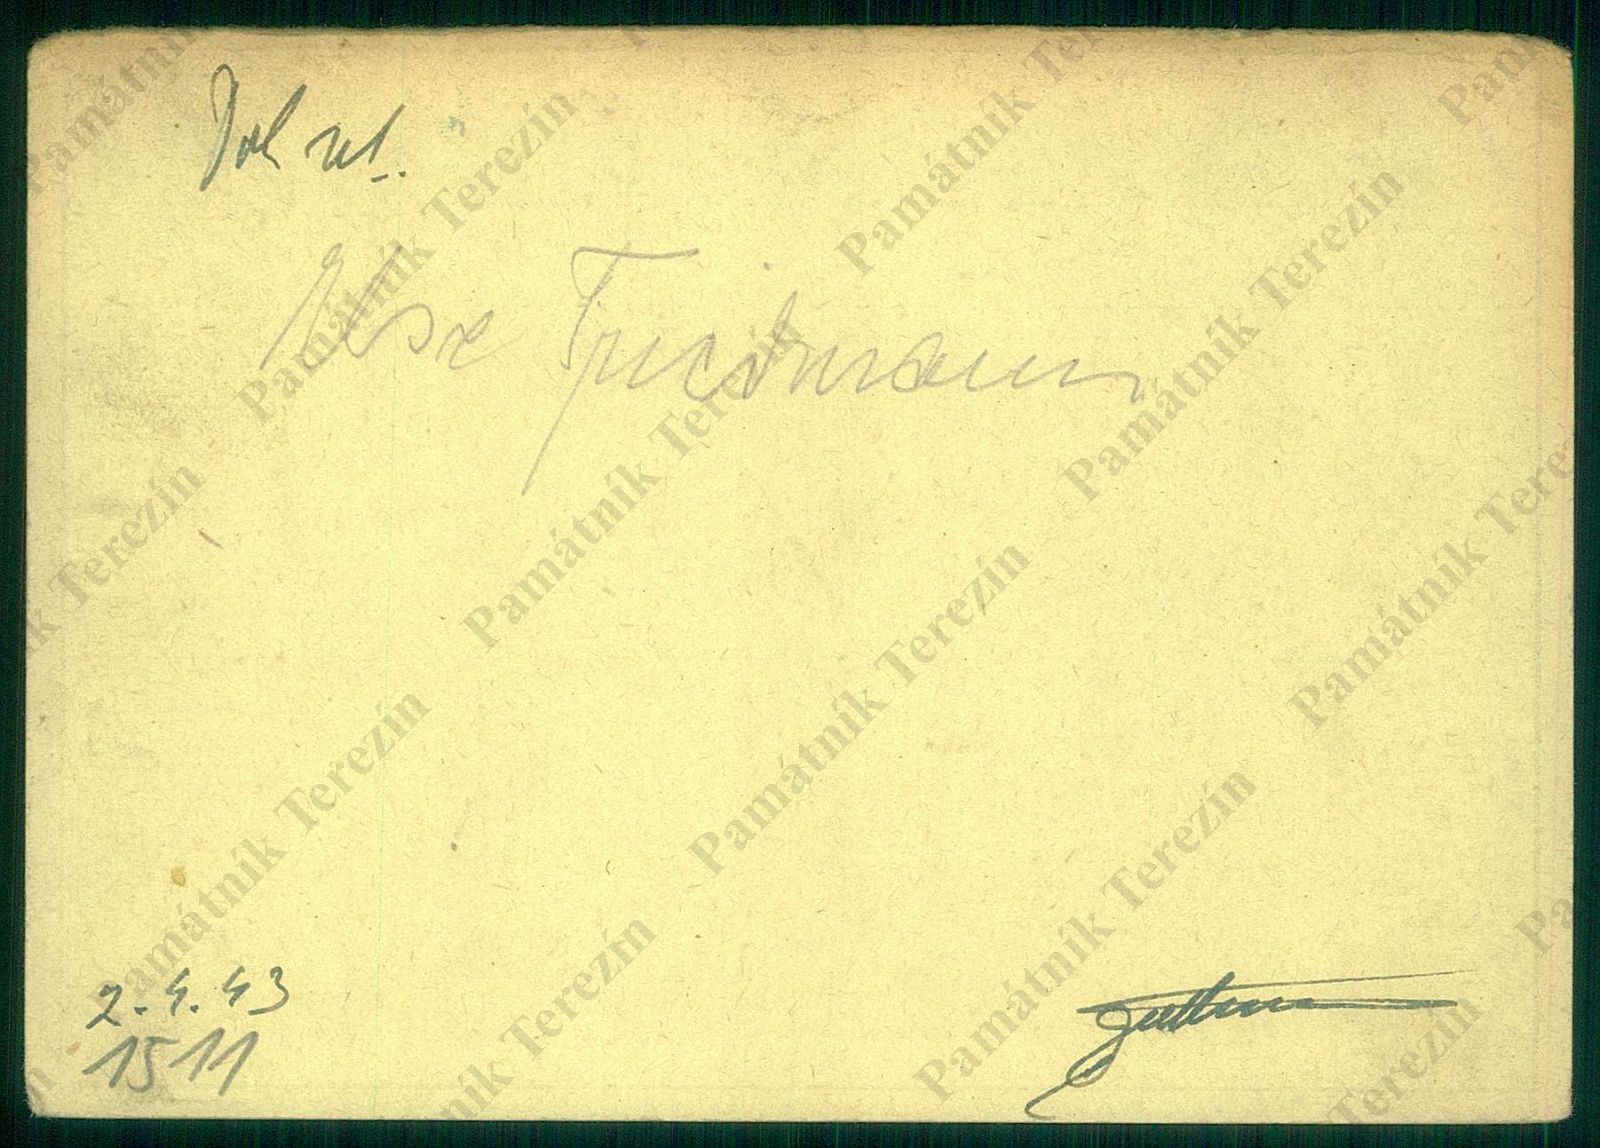 Dok ret.
Else Friedmann
2.4.43
1511
Guttmann
Památník Terezín